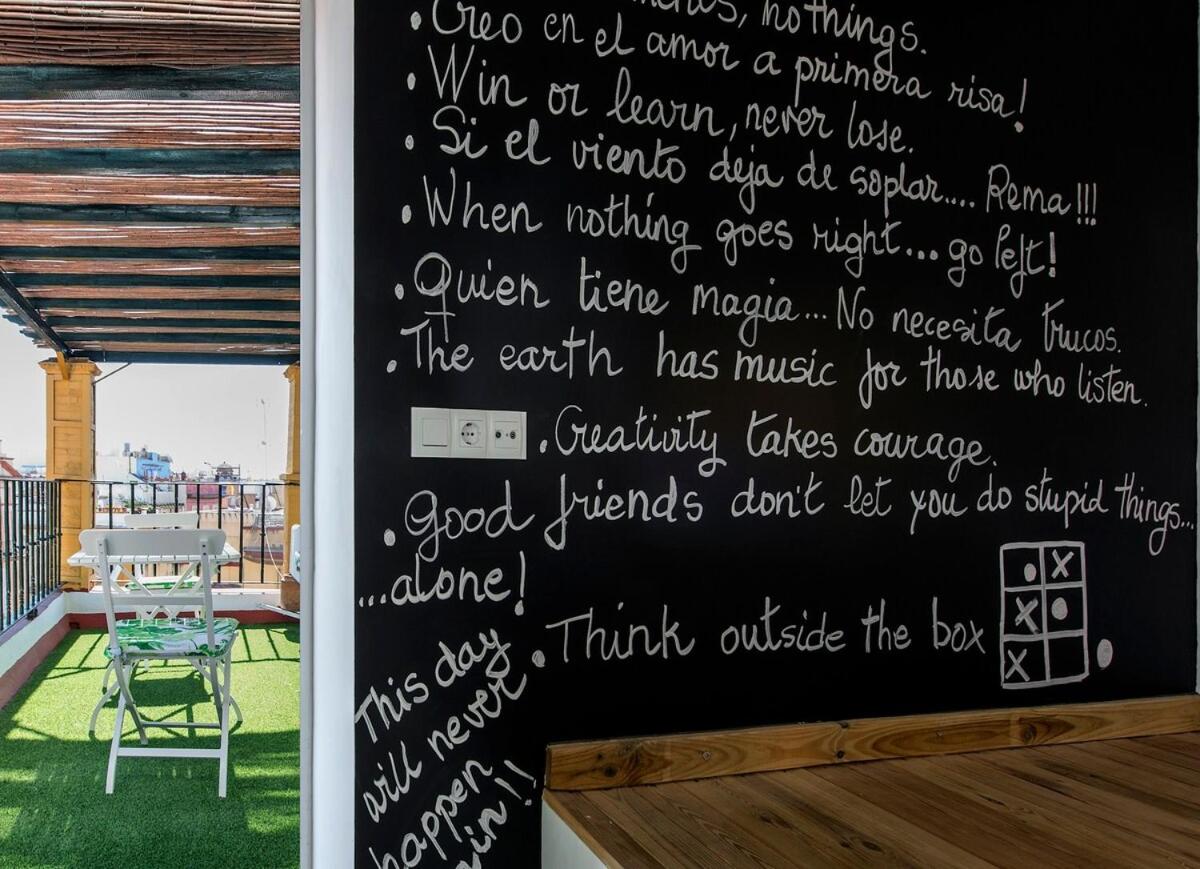 nothings.
. Creo en el amor a primera risa!
. Win or learn, never lose.
. Si el viento deja de soplar.... Rema!!!
. When nothing goes right... go left!
. Quien tiene magia... No necesita trucos.
. The earth has music for those who listen.
. Creativity takes courage.
. Good friends don't let you do stupid things...
...alone!
. Think outside the box
This day
will never
happen